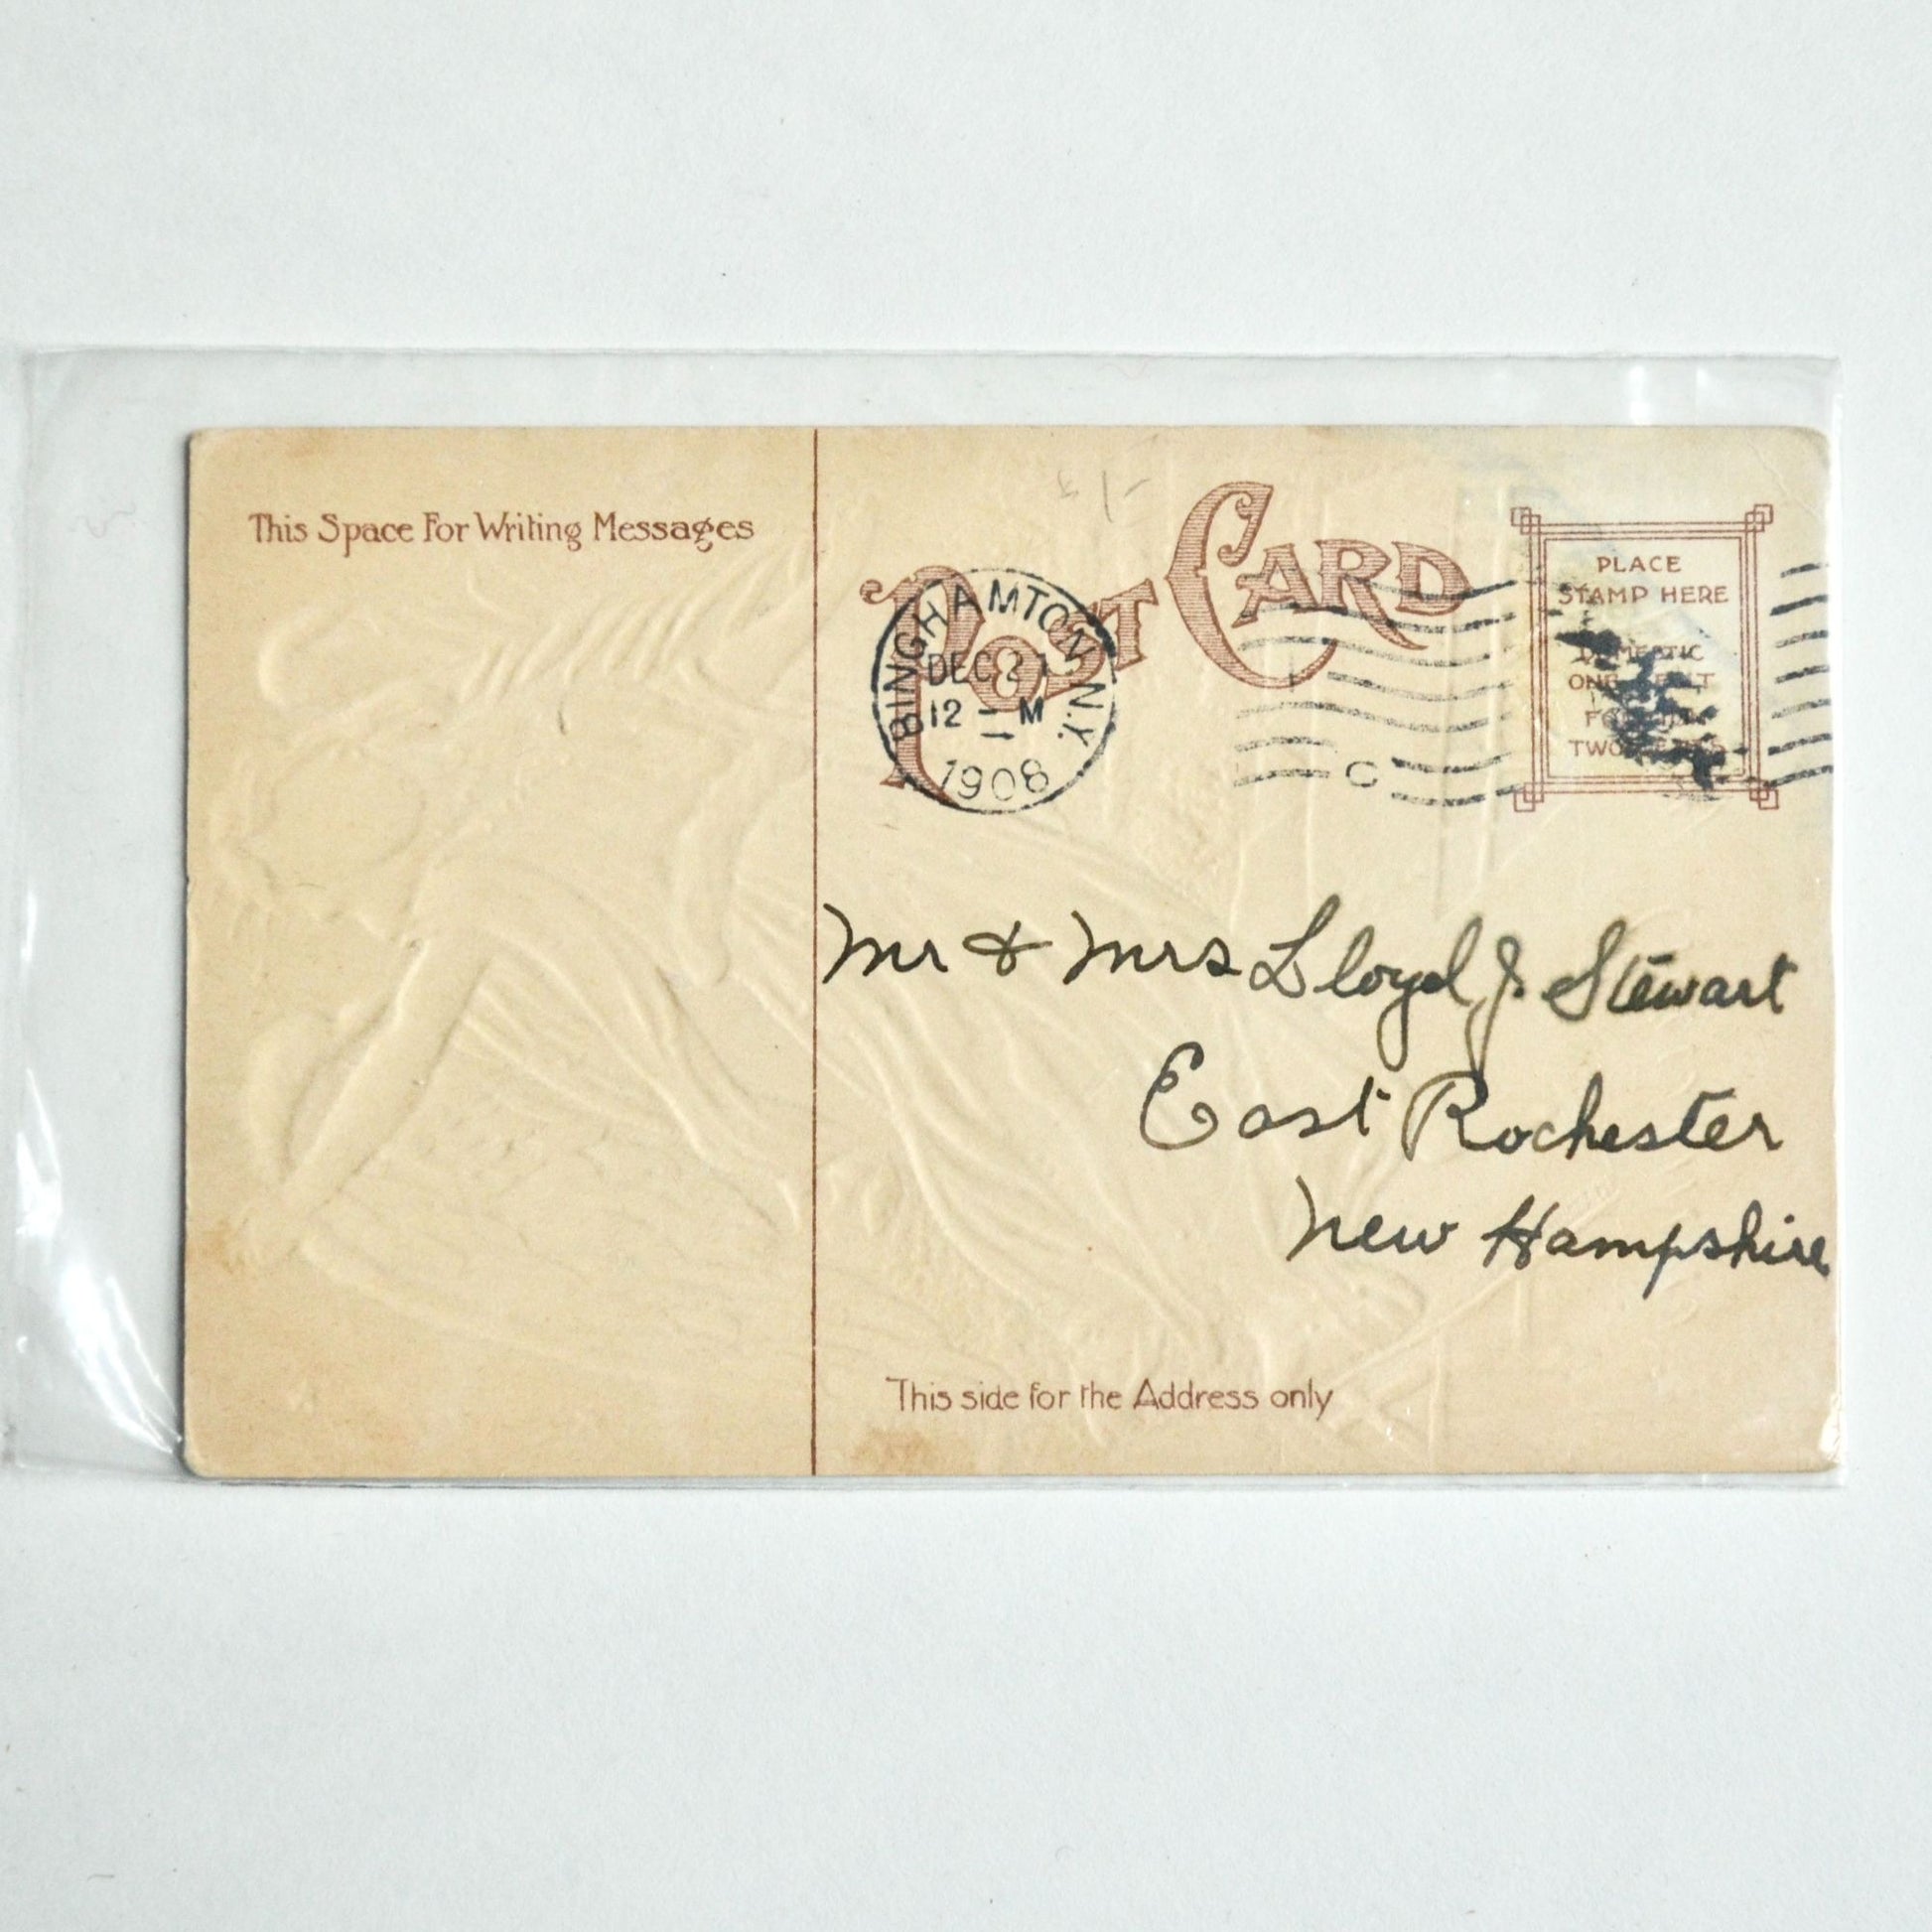 This Space For Writing Messages
POST CARD
BINGHAMTON N.Y.
DEC 2
12 - M
1908
C
PLACE
STAMP HERE
DOMESTIC
ONE CENT
FOREIGN
TWO CENTS
Mr & Mrs Lloyd J. Stewart
East Rochester
New Hampshire
This side for the Address only